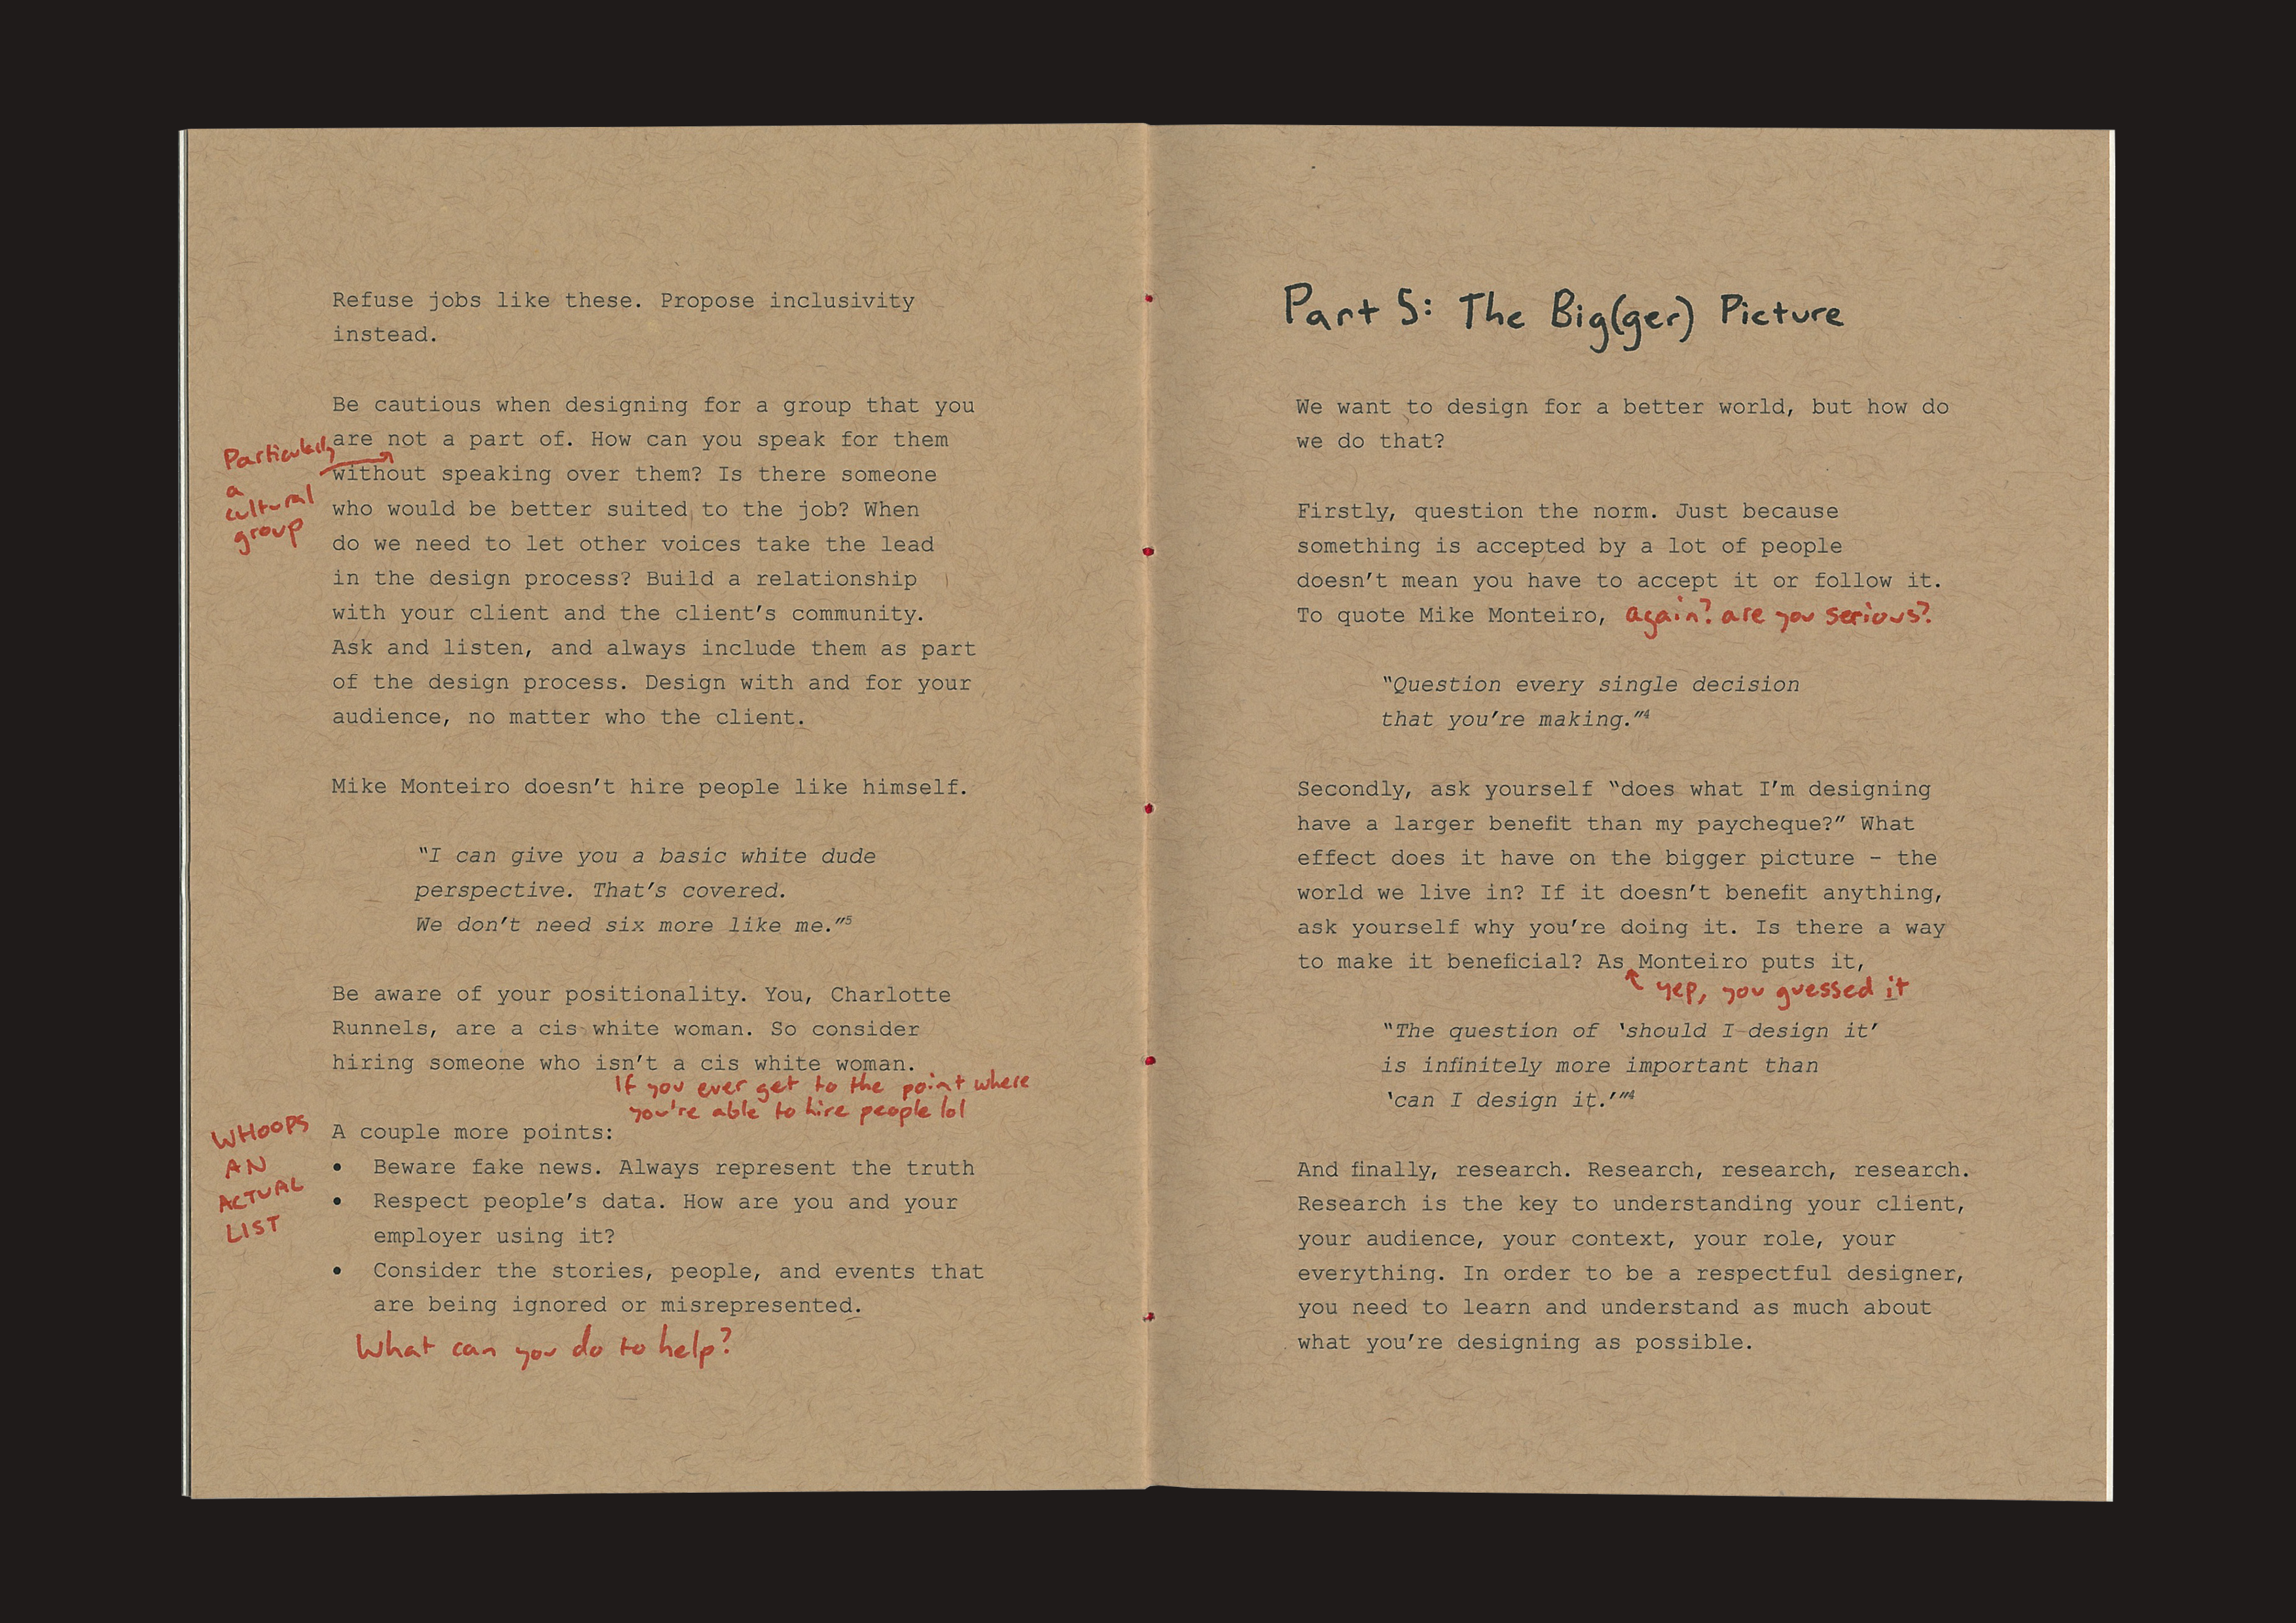 Refuse jobs like these. Propose inclusivity
instead.
Be cautious when designing for a group that you
are not a part of. How can you speak for them
without speaking over them? Is there someone
who would be better suited to the job? When
do we need to let other voices take the lead
in the design process? Build a relationship
with your client and the client's community.
Ask and listen, and always include them as part
of the design process. Design with and for your
audience, no matter who the client.
Particularly
a
cultural
group
Mike Monteiro doesn't hire people like himself.
"I can give you a basic white dude
perspective. That's covered.
We don't need six more like me."⁵
Be aware of your positionality. You, Charlotte
Runnels, are a cis white woman. So consider
hiring someone who isn't a cis white woman.
If you ever get to the point where
you're able to hire people lol
WHOOPS
AN
ACTUAL
LIST
A couple more points:
• Beware fake news. Always represent the truth
• Respect people's data. How are you and your
employer using it?
• Consider the stories, people, and events that
are being ignored or misrepresented.
What can you do to help?
Part 5: The Big(ger) Picture
We want to design for a better world, but how do
we do that?
Firstly, question the norm. Just because
something is accepted by a lot of people
doesn't mean you have to accept it or follow it.
To quote Mike Monteiro, again? are you serious?
"Question every single decision
that you're making."⁴
Secondly, ask yourself "does what I'm designing
have a larger benefit than my paycheque?" What
effect does it have on the bigger picture – the
world we live in? If it doesn't benefit anything,
ask yourself why you're doing it. Is there a way
to make it beneficial? As Monteiro puts it,
yep, you guessed it
"The question of 'should I design it'
is infinitely more important than
'can I design it.'"⁴
And finally, research. Research, research, research.
Research is the key to understanding your client,
your audience, your context, your role, your
everything. In order to be a respectful designer,
you need to learn and understand as much about
what you're designing as possible.